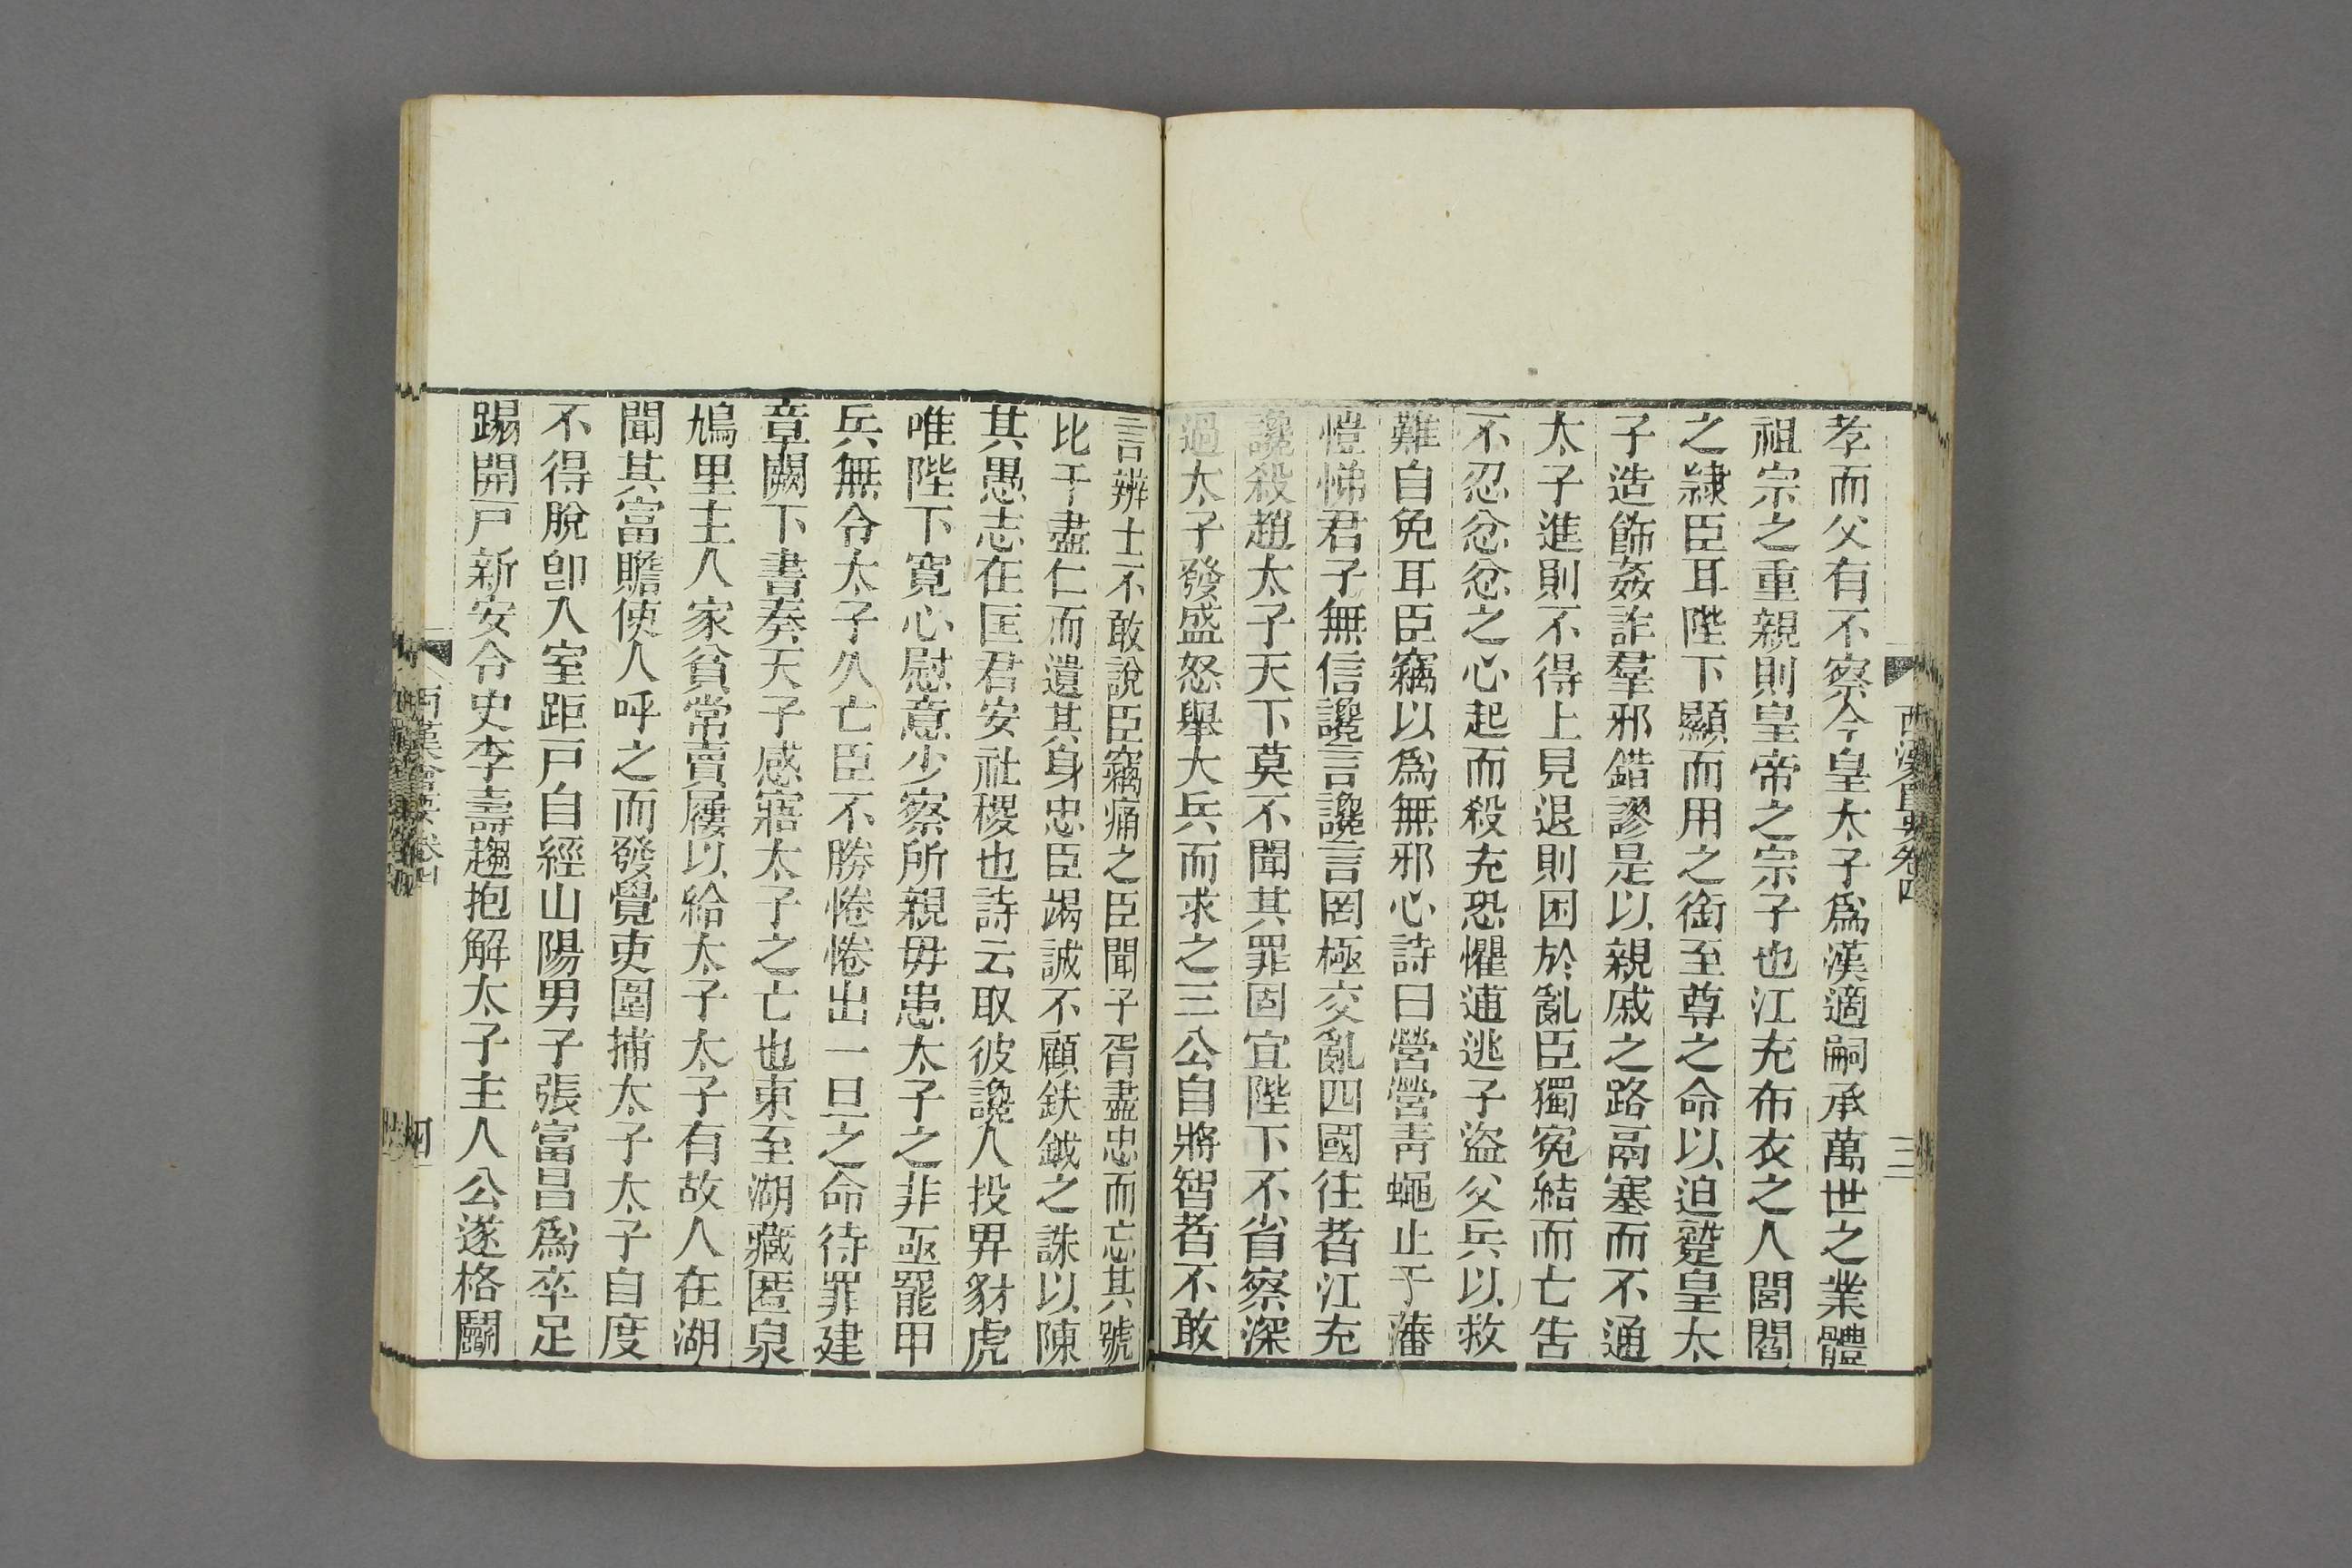 孝而父有不察今皇太子爲漢適嗣承萬世之業體
祖宗之重親則皇帝之宗子也江充布衣之人閭閻
之隷臣耳陛下顯而用之銜至尊之命以迫蹵皇太
子造飾姦詐羣邪錯謬是以親戚之路鬲塞而不通
太子進則不得上見退則困於亂臣獨冤結而亡告
不忍忿忿之心起而殺充恐懼逋逃子盜父兵以救
難自免耳臣竊以爲無邪心詩曰營營靑蠅止于藩
愷悌君子無信讒言讒言罔極交亂四國往者江充
讒殺趙太子天下莫不聞其罪固宜陛下不省察深
過太子發盛怒舉大兵而求之三公自將智者不敢
言辨士不敢說臣竊痛之臣聞子胥盡忠而忘其號
比干盡仁而遺其身忠臣竭誠不顧鈇鉞之誅以陳
其愚志在匡君安社稷也詩云取彼讒人投畀豺虎
唯陛下寬心慰意少察所親毋患太子之非亟罷甲
兵無令太子久亡臣不勝惓惓出一旦之命待罪建
章闕下書奏天子感寤太子之亡也東至湖藏匿泉
鳩里主人家貧常賣屨以給太子太子有故人在湖
聞其富贍使人呼之而發覺吏圍捕太子太子自度
不得脫卽入室距戸自經山陽男子張富昌爲卒足
蹋開戸新安令史李壽趨抱解太子主人公遂格鬭
西漢會要卷四
三